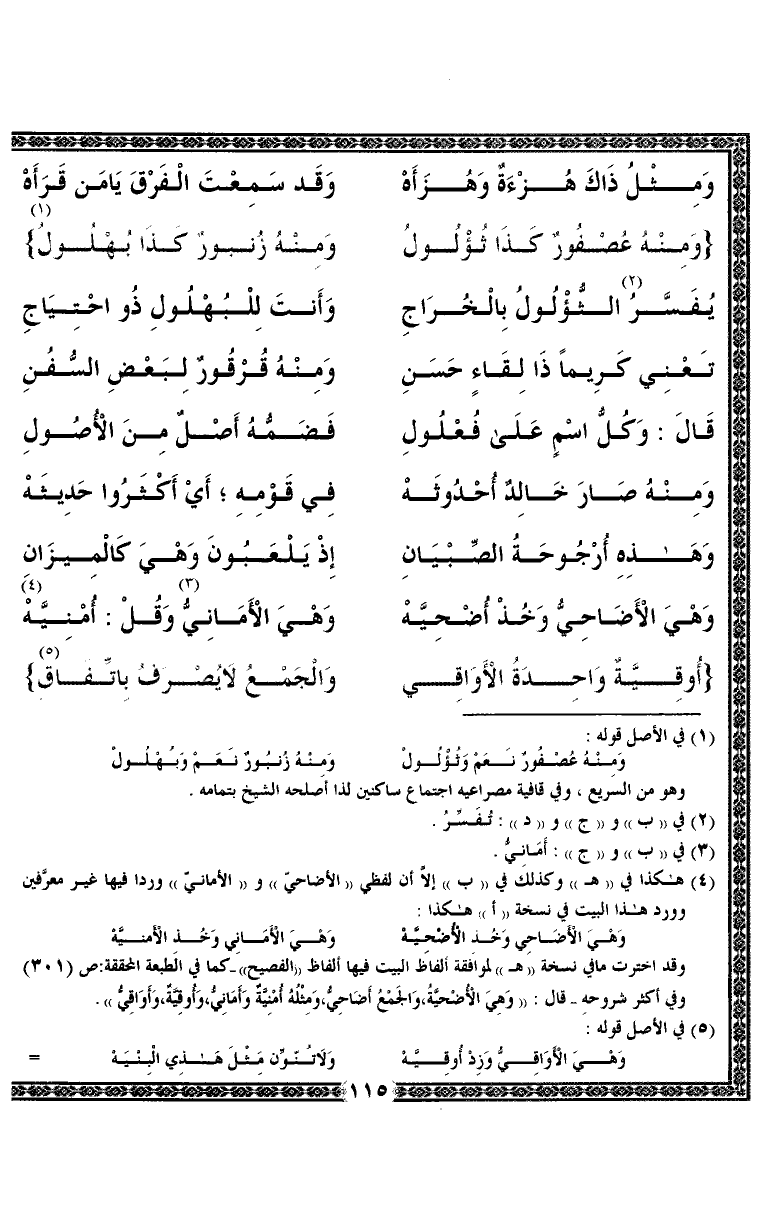 وَمِثْلُ ذَاكَ هُزْءَةٌ وَهُزَأَهْ وَقَد سَمِعْتَ الْفَرْقَ يَامَن قَرَأَهْ
{وَمِنْهُ عُصْفُورٌ كَذَا ثُؤْلُولُ وَمِنْهُ زُنبورٌ كَذَا بُهْلُولُ} (١)
يُفَسَّرُ (٢) الثُّؤْلُولُ بِالْخُرَاجِ وَأَنتَ لِلْبُهْلُولِ ذُو احْتِيَاجِ
تَعْنِي كَرِيماً ذَا لِقَاءٍ حَسَنِ وَمِنْهُ قُرْقُورٌ لِبَعْضِ السُّفُنِ
قَالَ : وَكُلُّ اسْمٍ عَلَىٰ فُعْلُولِ فَضَمُّهُ أَصْلٌ مِنَ الْأُصُولِ
وَمِنْهُ صَارَ خَالِدٌ أُحْدُوثَهْ فِي قَوْمِهِ ؛ أَيْ أَكْثَرُوا حَدِيثَهْ
وَهَـٰذِهِ أُرْجُوحَةُ الصِّبْيَانِ إِذْ يَلْعَبُونَ وَهْيَ كَالْمِيزَانِ
وَهْيَ الْأَضَاحِيُّ وَخُذْ أُضْحِيَّهْ وَهْيَ الْأَمَانِيُّ (٣) وَقُلْ : أُمْنِيَّهْ (٤)
{أُوقِيَّةٌ وَاحِدَةُ الْأَوَاقِي وَالْجَمْعُ لَايُصْرَفُ بِاتِّفَاقِ} (٥)
(١) في الأصل قوله :
وَمِنْهُ عُصْفُورٌ نَعَمْ وَثُؤْلُولْ وَمِنْهُ زُنبُورٌ نَعَمْ وَبُهْلُولْ
وهو من السريع ، وفي قافية مصراعيه اجتماع ساكنين لذا أصلحه الشيخ بتمامه .
(٢) في « ب » و « ج » و « د » : تُفَسِّرُ .
(٣) في « ب » و « ج » : أَمَانِيُّ .
(٤) هـٰكذا في « هـ » وكذلك في « ب » إلاَّ أن لفظي « الأضاحيّ » و « الأمانيّ » وردا فيها غير معرَّفين
وورد هـٰذا البيت في نسخة « أ » هـٰكذا :
وَهْيَ الْأَضَاحِي وَخُذِ الْأُضْحِيَّهْ وَهْيَ الْأَمَانِي وَخُذِ الْأُمنيَّهْ
وقد اخترت مافي نسخة « هـ » لموافقة ألفاظ البيت فيها ألفاظ «الفصيح» ـ كما في الطبعة المحققة:ص (٣٠١)
وفي أكثر شروحه ـ قال : « وَهِيَ الْأُضْحِيَّةُ،وَالجَمْعُ أَضَاحِيُّ،وَمِثْلُهُ أُمْنِيَّةٌ وَأَمَانِيُّ،وَأُوقِيَّةٌ،وَأَوَاقِيُّ » .
(٥) في الأصل قوله :
وَهْيَ الْأَوَاقِيُّ وَزِدْ أُوقِيَّهْ وَلَاتُنَوِّن مِثْلَ هَـٰذِي الْبِنْيَهْ =
١١٥